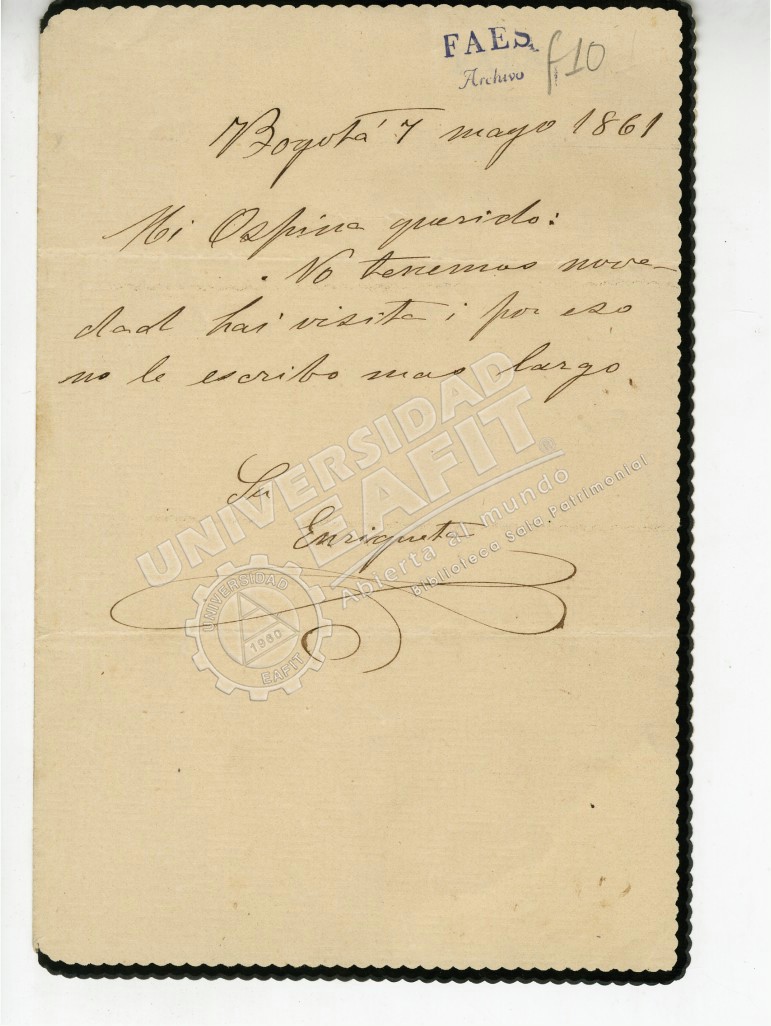 FAES
Archivo
f10
Bogotá 7 mayo 1861
Mi Ospina querido:
No tenemos nove-
dad hai visita i por eso
no le escribo mas largo.
Su
Enriqueta
UNIVERSIDAD
EAFIT®
Abierta al mundo
Biblioteca Sala Patrimonial
UNIVERSIDAD
1960
EAFIT